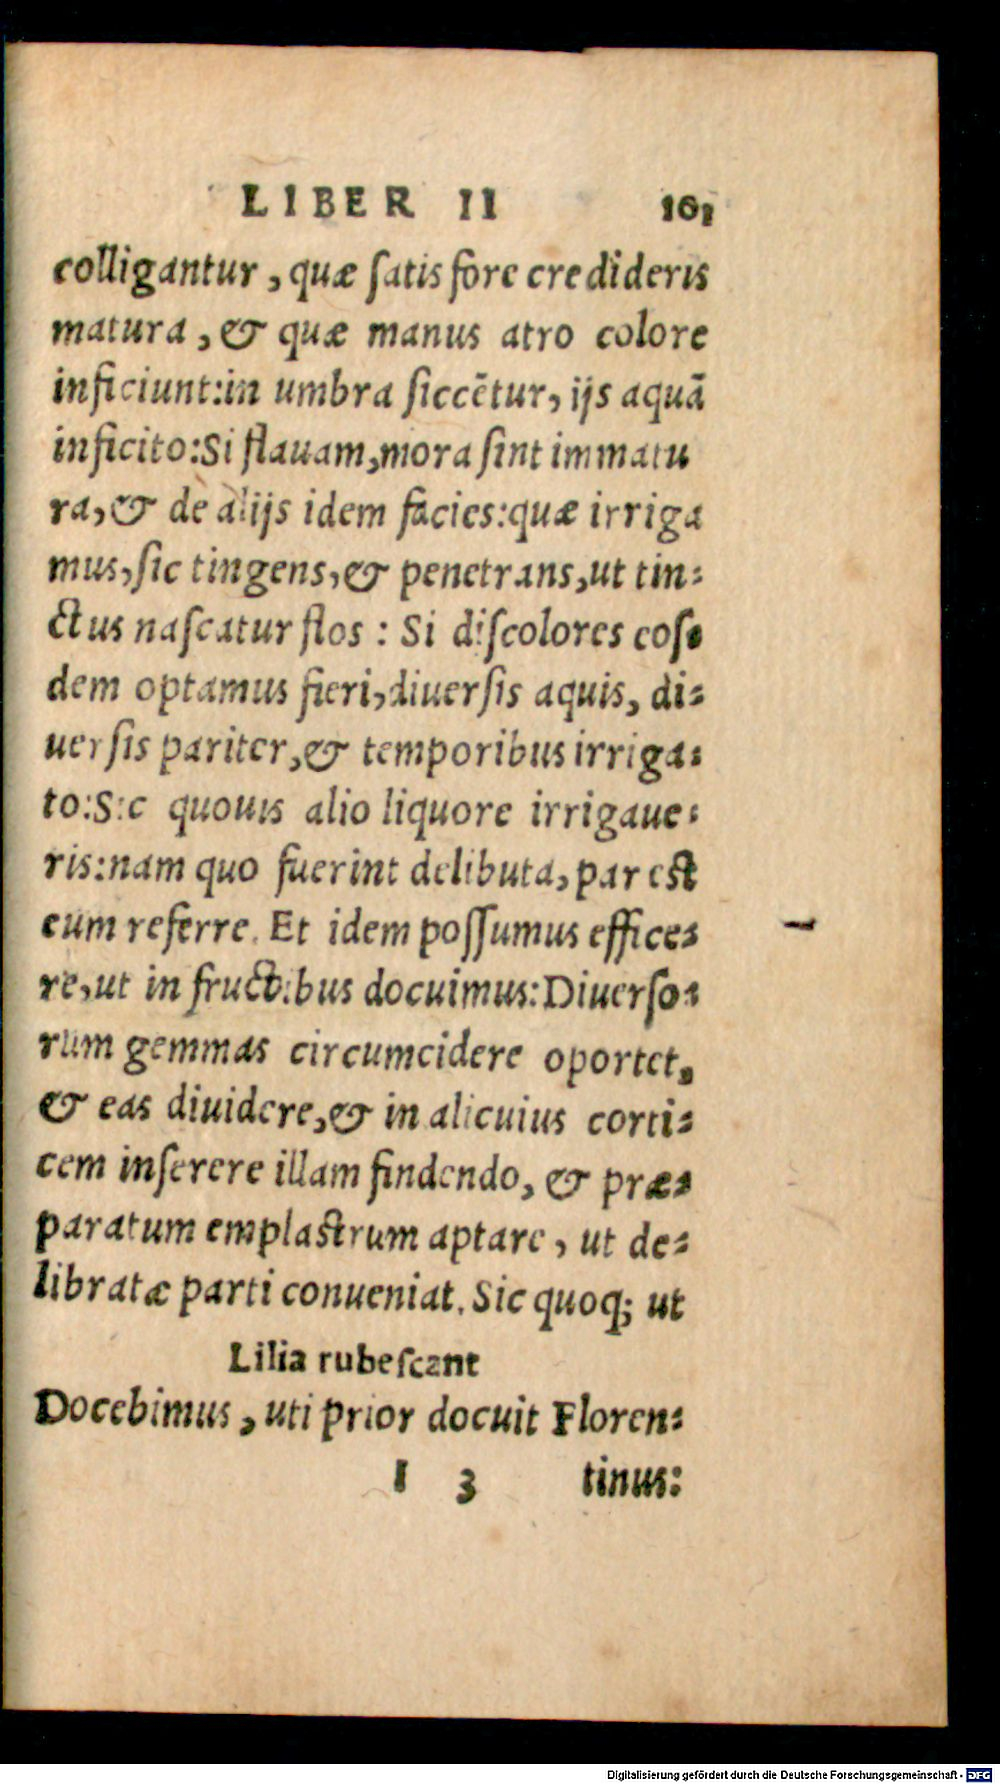 LIBER II 161
colligantur, quæ ſatis fore credideris
matura, & quæ manus atro colore
inficiunt:in umbra ſiccētur, ijs aquā
inficito:Si flauam,mora ſint immatu
ra,& de alijs idem facies:quæ irriga
mus,ſic tingens,& penetrans,ut tin-
ctus naſcatur flos : Si diſcolores eoſ-
dem optamus fieri,diuerſis aquis, di-
uerſis pariter,& temporibus irriga-
to:Sic quouis alio liquore irrigaue-
ris:nam quo fuerint delibuta, par est
eum referre. Et idem poſſumus effice-
re,ut in fructibus docuimus:Diuerſo-
rum gemmas circumcidere oportet,
& eas diuidere,& in alicuius corti-
cem inſerere illam findendo, & præ-
paratum emplastrum aptare, ut de-
libratæ parti conueniat. Sic quoq; ut
Lilia rubeſcant
Docebimus, uti prior docuit Floren-
I 3 tinus:
Digitalisierung gefördert durch die Deutsche Forschungsgemeinschaft - DFG